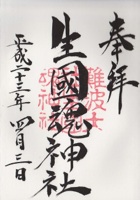 奉拝
生國魂神社
平成二十三年四月三日
難波大社